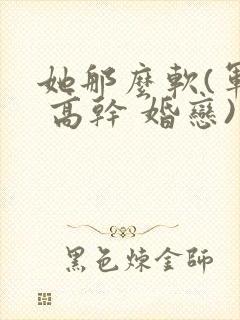 她那麼軟(軍
高幹 婚戀)
黑色煉金師